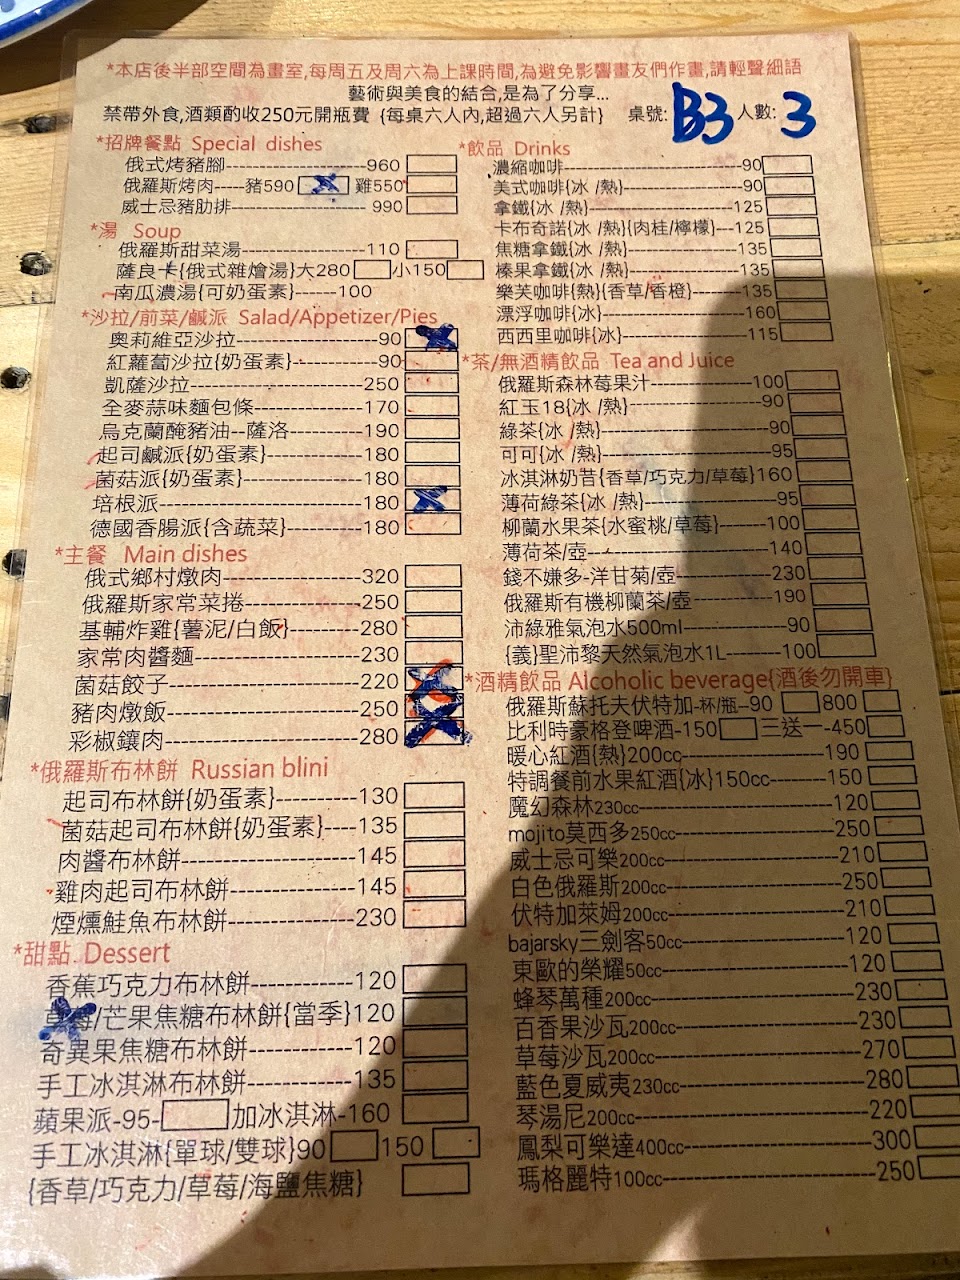 *本店後半部空間為畫室,每周五及周六為上課時間,為避免影響畫友們作畫,請輕聲細語
藝術與美食的結合,是為了分享...
禁帶外食,酒類酌收250元開瓶費 {每桌六人內,超過六人另計} 桌號: B3 人數: 3
*招牌餐點 Special dishes
俄式烤豬腳----------------------960
俄羅斯烤肉-----豬590 雞550
威士忌豬肋排---------------------- 990
*湯 Soup
俄羅斯甜菜湯--------------------110
薩良卡{俄式雜燴湯}大280 小150
南瓜濃湯{可奶蛋素}------100
*沙拉/前菜/鹹派 Salad/Appetizer/Pies
奧莉維亞沙拉-----------------------90
紅蘿蔔沙拉{奶蛋素}--------------90
凱薩沙拉----------------------------250
全麥蒜味麵包條------------------170
烏克蘭醃豬油--薩洛-------------190
起司鹹派{奶蛋素}---------------180
菌菇派{奶蛋素}------------------180
培根派-------------------------------180
德國香腸派{含蔬菜}------------180
*主餐 Main dishes
俄式鄉村燉肉---------------------320
俄羅斯家常菜捲------------------250
基輔炸雞{薯泥/白飯}-----------280
家常肉醬麵------------------------230
菌菇餃子---------------------------220
豬肉燉飯---------------------------250
彩椒鑲肉---------------------------280
*俄羅斯布林餅 Russian blini
起司布林餅{奶蛋素}----------130
菌菇起司布林餅{奶蛋素}----135
肉醬布林餅----------------------145
雞肉起司布林餅----------------145
煙燻鮭魚布林餅----------------230
*甜點. Dessert
香蕉巧克力布林餅-------------120
草莓/芒果焦糖布林餅{當季}120
奇異果焦糖布林餅-------------120
手工冰淇淋布林餅-------------135
蘋果派-95- 加冰淇淋-160
手工冰淇淋{單球/雙球}90 150
{香草/巧克力/草莓/海鹽焦糖}
*飲品 Drinks
濃縮咖啡-----------------------------90
美式咖啡{冰 /熱}-------------------90
拿鐵{冰 /熱}-----------------------125
卡布奇諾{冰 /熱}{肉桂/檸檬}---125
焦糖拿鐵{冰 /熱}------------------135
榛果拿鐵{冰 /熱}------------------135
樂芙咖啡{熱}{香草/香橙}--------135
漂浮咖啡{冰}-----------------------160
西西里咖啡{冰}--------------------115
*茶/無酒精飲品 Tea and Juice
俄羅斯森林莓果汁---------------100
紅玉18{冰 /熱}---------------------90
綠茶{冰 /熱}------------------------90
可可{冰 /熱}-------------------------95
冰淇淋奶昔{香草/巧克力/草莓}160
薄荷綠茶{冰 /熱}-------------------95
柳蘭水果茶{水蜜桃/草莓}-------100
薄荷茶/壺---------------------------140
錢不嫌多-洋甘菊/壺-------------230
俄羅斯有機柳蘭茶/壺-----------190
沛綠雅氣泡水500ml---------------90
{義}聖沛黎天然氣泡水1L--------100
*酒精飲品 Alcoholic beverage{酒後勿開車}
俄羅斯蘇托夫伏特加-杯/瓶--90 800
比利時豪格登啤酒-150 三送一-450
暖心紅酒{熱}200cc-----------------190
特調餐前水果紅酒{冰}150cc------150
魔幻森林230cc---------------------120
mojito莫西多250cc----------------250
威士忌可樂200cc------------------210
白色俄羅斯200cc------------------250
伏特加萊姆200cc------------------210
bajarsky三劍客50cc---------------120
東歐的榮耀50cc--------------------120
蜂琴萬種200cc---------------------230
百香果沙瓦200cc------------------230
草莓沙瓦200cc---------------------270
藍色夏威夷230cc------------------280
琴湯尼200cc-----------------------220
鳳梨可樂達400cc------------------300
瑪格麗特100cc---------------------250